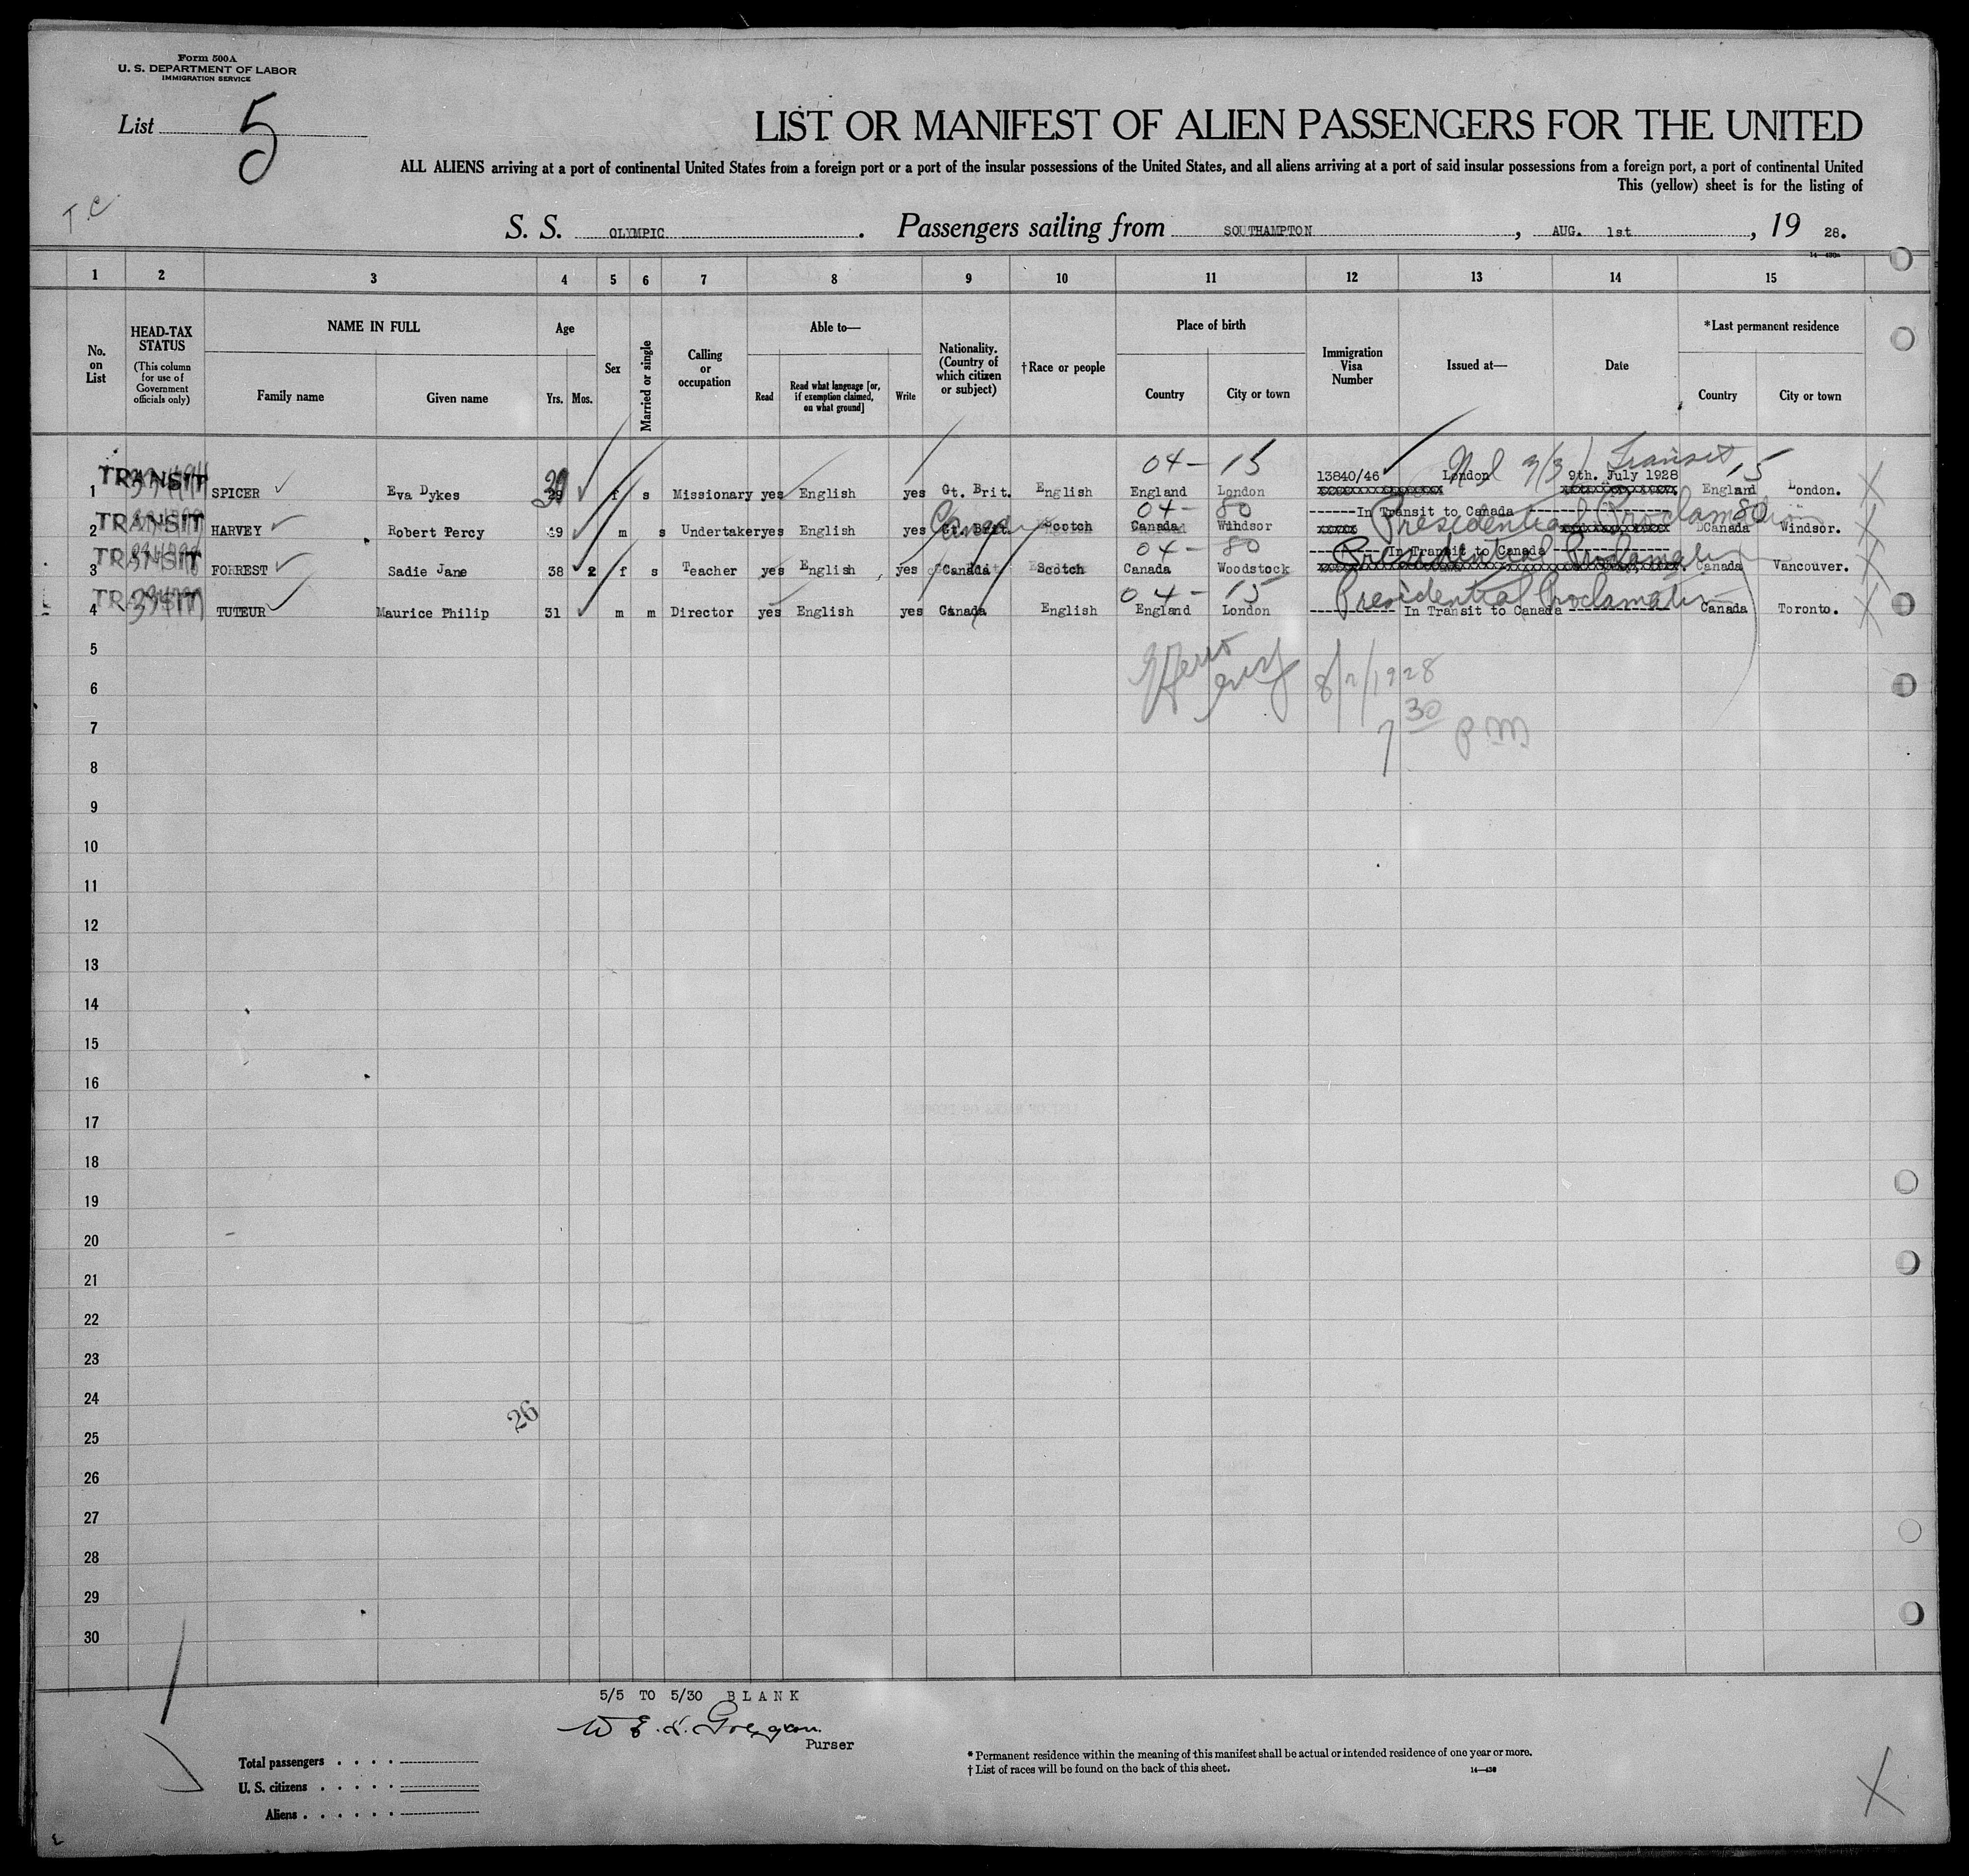 Form 500A
U. S. DEPARTMENT OF LABOR
IMMIGRATION SERVICE
List 5
LIST OR MANIFEST OF ALIEN PASSENGERS FOR THE UNITED
ALL ALIENS arriving at a port of continental United States from a foreign port or a port of the insular possessions of the United States, and all aliens arriving at a port of said insular possessions from a foreign port, a port of continental United
This (yellow) sheet is for the listing of
T.C.
S. S. OLYMPIC. Passengers sailing from SOUTHAMPTON, AUG. 1st, 19 28.
1 2 3 4 5 6 7 8 9 10 11 12 13 14 15
No. on List
HEAD-TAX STATUS
(This column for use of Government officials only)
NAME IN FULL
Family name Given name
Age
Yrs. Mos.
Sex
Married or single
Calling or occupation
Able to—
Read Read what language [or, if exemption claimed, on what ground] Write
Nationality. (Country of which citizen or subject)
†Race or people
Place of birth
Country City or town
Immigration Visa Number
Issued at—
Date
*Last permanent residence
Country City or town
04- 15 Transit 15
1 TRANSIT SPICER Eva Dykes 29 f s Missionary yes English yes Gt. Brit. English England London 13840/46 London 9th. July 1928 England London.
04- 80 80
2 TRANSIT HARVEY Robert Percy 49 m s Undertaker yes English yes Canada Scotch Canada Windsor In Transit to Canada Presidential Proclamation Canada Windsor.
04- 80
3 TRANSIT FORREST Sadie Jane 38 2 f s Teacher yes English yes Canada Scotch Canada Woodstock In Transit to Canada Presidential Proclamation Canada Vancouver.
04- 15
4 TRANSIT TUTEUR Maurice Philip 31 m m Director yes English yes Canada English England London In Transit to Canada Presidential Proclamation Canada Toronto.
5
6 8/7/1928
7 7 30 PM
8
9
10
11
12
13
14
15
16
17
18
19
20
21
22
23
24
26
25
26
27
28
29
30
5/5 TO 5/30 BLANK
Purser
Total passengers
U. S. citizens
Aliens
* Permanent residence within the meaning of this manifest shall be actual or intended residence of one year or more.
† List of races will be found on the back of this sheet.
14—430